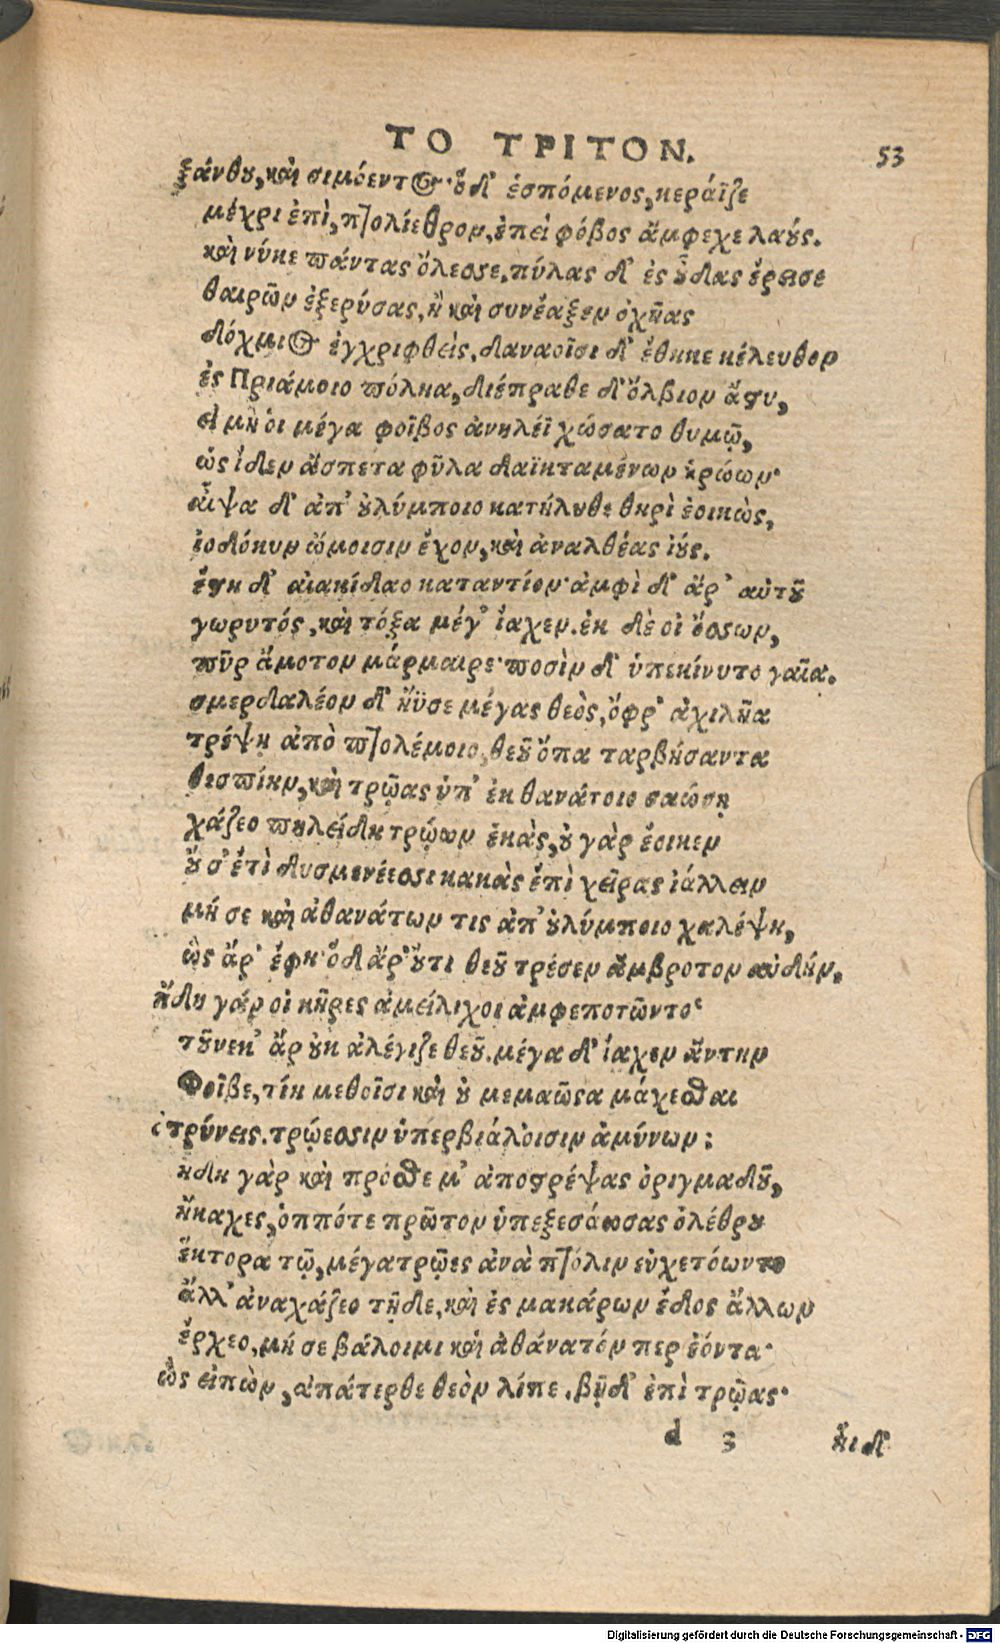 ΤΟ ΤΡΙΤΟΝ. 53
ξάνθου, καὶ σιμόεντος· ὁ δ' ἑσπόμενος, κεράϊζε
μέχρι ἐπὶ, πτολίεθρον, ἐπεὶ φόβος ἄμφεχε λαούς.
καὶ νύκε πάντας ὄλεσσε, πύλας δ' ἐς οὖδας ἔρεισε
θαιρῶν ἐξερύσας, ἢ καὶ συνέαξεν ὀχῆας
δόχμιος ἐγχριφθεὶς, δαναοῖσι δ' ἔθηκε κέλευθον
ἐς Πριάμοιο πόληα, διέπραθε δ' ὄλβιον ἄστυ,
εἰ μὴ οἱ μέγα φοῖβος ἀνηλέϊ χώσατο θυμῷ,
ὡς ἴδεν ἄσπετα φῦλα δαϊκταμένων ἡρώων·
αἶψα δ' ἀπ' οὐλύμποιο κατήλυθε θηρὶ ἐοικὼς,
ἰοδόκην ὤμοισιν ἔχον, καὶ ἀναλθέας ἰούς.
ἔστη δ' αἰακίδαο καταντίον· ἀμφὶ δ' ἄρ' αὐτοῦ
γωρυτός, καὶ τόξα μέγ' ἴαχεν. ἐκ δέ οἱ ὄσσων,
πῦρ ἄμοτον μάρμαιρε· ποσὶν δ' ὑπεκίνυτο γαῖα.
σμερδαλέον δ' ἤϋσε μέγας θεὸς, ὄφρ' ἀχιλῆα
τρέψῃ ἀπὸ πτολέμοιο, θεοῦ ὄπα ταρβήσαντα
θεσπίην, καὶ τρῶας ὑπ' ἐκ θανάτοιο σαώσῃ
χάζεο πηλείδη τρώων ἑκὰς, οὐ γὰρ ἔοικεν
οὔ σ' ἔτὶ δυσμενέεσσι κακὰς ἐπὶ χεῖρας ἰάλλειν
μή σε καὶ ἀθανάτων τις ἀπ' οὐλύμποιο χαλέψῃ,
ὣς ἄρ' ἔφη· ὁ δ' ἄρ' οὔτι θεοῦ τρέσεν ἄμβροτον αὐδήν.
ἤδη γάρ οἱ κῆρες ἀμείλιχοι ἀμφεποτῶντο·
τοῦνεκ' ἄρ οὐκ ἀλέγιζε θεοῦ. μέγα δ' ἴαχεν ἄντην
Φοῖβε, τίη μεθοῖσι καὶ οὐ μεμαῶσα μάχεσθαι
ὀτρύνεις. τρώεσσιν ὑπερβιάλοισιν ἀμύνων;
ηδη γὰρ καὶ πρόσθε μ' ἀποστρέψας ὀριγμαδοῦ,
ἤκαχες, ὁππότε πρῶτον ὑπεξεσάωσας ὀλέθρου
ἕκτορα τῷ, μέγα τρῶες ἀνὰ πτόλιν εὐχετόωντο
ἄλλ' ἀναχάζεο τῆδε, καὶ ἐς μακάρων ἕδος ἄλλων
ἔρχεο, μή σε βάλοιμι καὶ ἀθάνατόν περ ἐόντα·
ὣς εἰπὼν, ἀπάτερθε θεὸν λίπε. βῆ δ' ἐπὶ τρῶας·
d 3 ἥι δ'
Digitalisierung gefördert durch die Deutsche Forschungsgemeinschaft - DFG